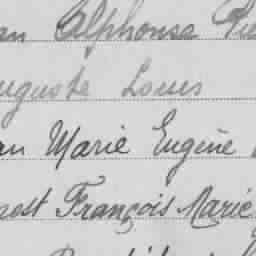 an Alphonse
uguste Louis
an Marie Eugène
nest François Marie